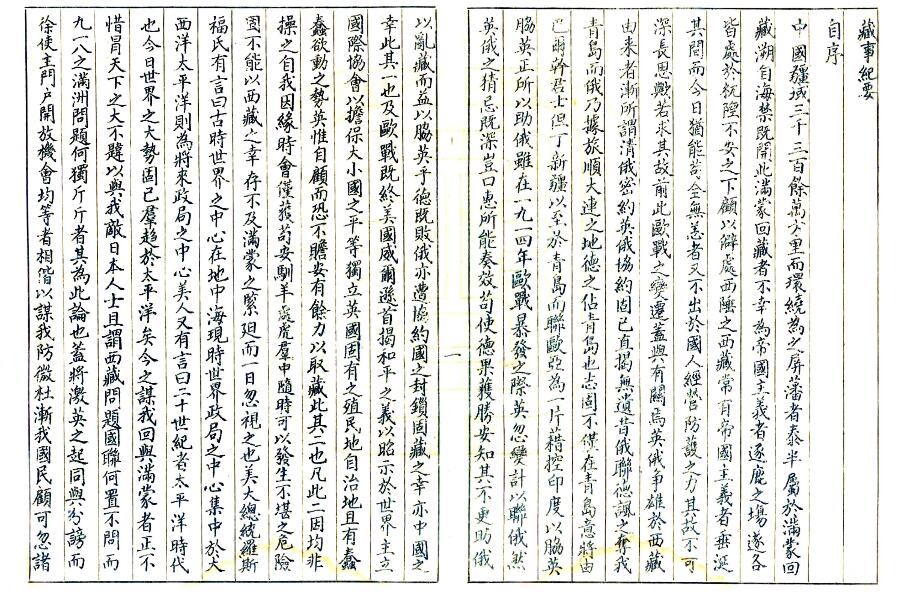 藏事紀要
自序
中國疆域三千三百餘萬方里而環繞為之屏藩者泰半屬於滿蒙回
藏溯自海禁既開此滿蒙回藏者不幸為帝國主義者逐鹿之場遂各
皆處於杌隉不安之下顧以僻處西陲之西藏常有帝國主義者垂涎
其間而今日猶能苟全無恙者又不出於國人經營防護之力其故不可
深長思歟若求其故前此歐戰之變遷蓋與有關焉英俄爭雄於西藏
由来者漸所謂清俄密約英俄協約固已直揭無遺昔俄聯德諷之奪我
青島而俄乃據旅順大連之地德之佔青島也志固不僅在青島意將由
巴爾幹君士但丁新疆以至於青島而聯歐亞為一片藉控印度以脇英
脇英正所以助俄雖在一九一四年歐戰暴發之際英忽變計以聯俄然
英俄之猜忌既深豈口惠所能奏效苟使德果獲勝安知其不更助俄
一
以亂藏而益以脇英乎德既敗俄亦遭協約國之封鎖固藏之幸亦中國之
幸此其一也及歐戰既終美國威爾遜首揭和平之義以昭示於世界主立
國際協會以擔保大小國之平等獨立英國固有之殖民地自治地且有蠢
蠢欲動之勢英惟自顧而恐不贍安有餘力以取藏此其二也凡此二因均非
操之自我因緣時會僅獲苟安馴羊處虎羣中隨時可以發生不堪之危險
固不能以西藏之幸存不及滿蒙之緊迫而一日忽視之也美大總統羅斯
福氏有言曰古時世界之中心在地中海現時世界政局之中心集中於大
西洋太平洋則為將來政局之中心美人又有言曰二十世紀者太平洋時代
也今日世界之大勢固已羣趨於太平洋矣今之謀我回與滿蒙者正不
惜冒天下之大不韙以與我敵日本人士且謂西藏問題國聯何置不問而
九一八之滿洲問題何獨斤斤者其為此論也蓋將激英之起同與分謗而
徐使主門户開放機會均等者相偕以謀我防微杜漸我國民顧可忽諸